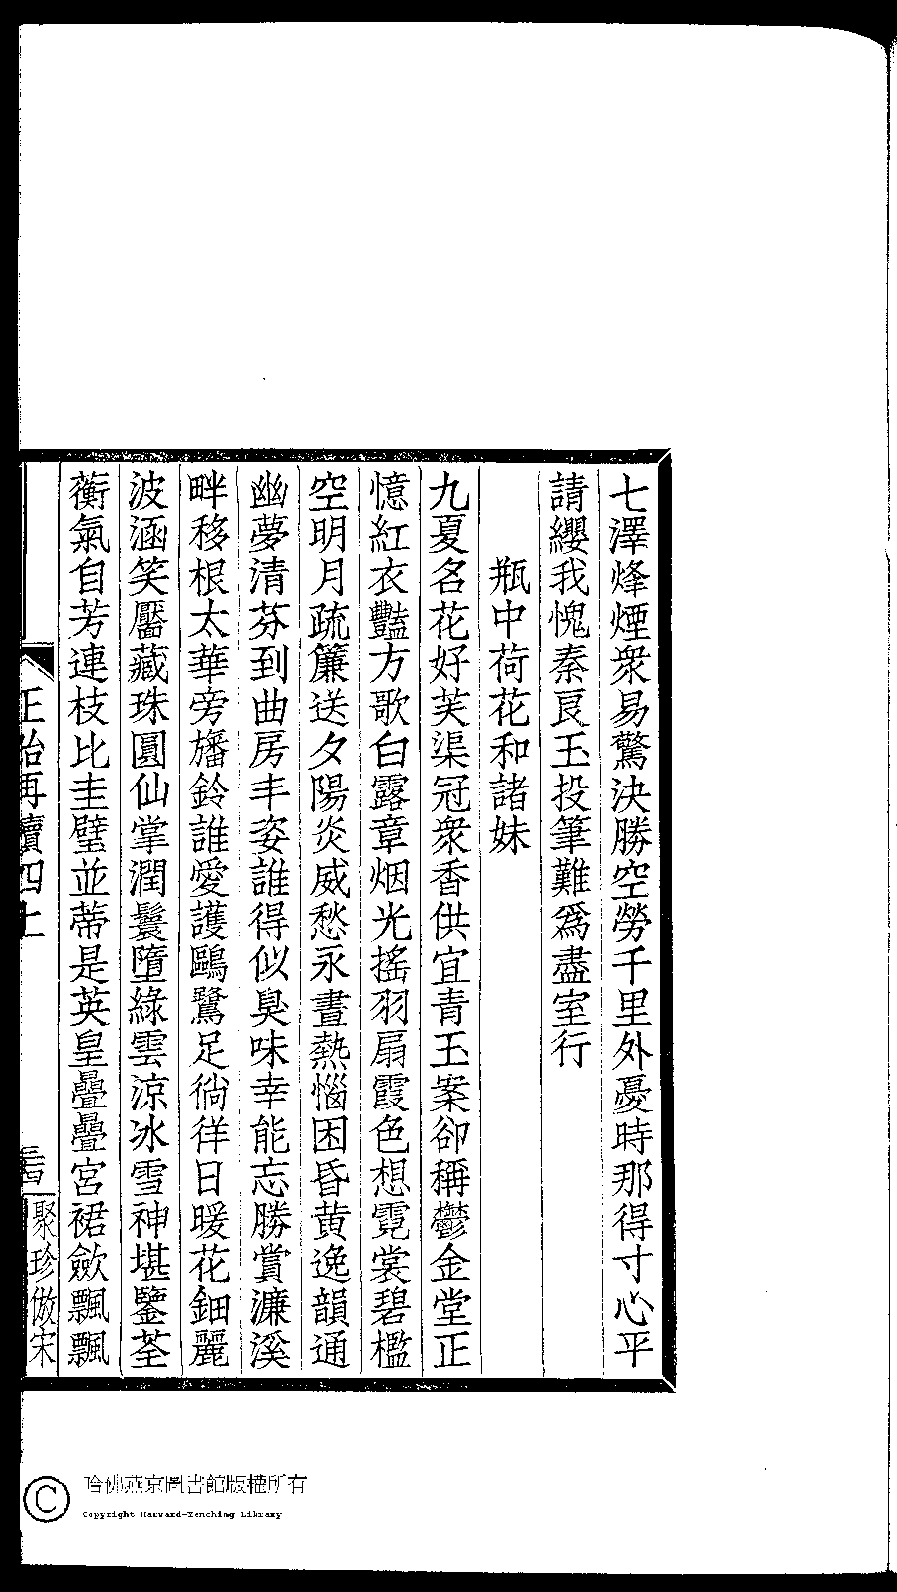 七澤烽煙衆易驚決勝空勞千里外憂時那得寸心平
請纓我愧秦良玉投筆難爲盡室行
瓶中荷花和諸妹
九夏名花好芙渠冠衆香供宜青玉案卻稱鬱金堂正
憶紅衣豔方歌白露章烟光搖羽扇霞色想霓裳碧檻
空明月疏簾送夕陽炎威愁永晝熱惱困昏黄逸韻通
幽夢清芬到曲房丰姿誰得似臭味幸能忘勝賞濂溪
畔移根太華旁旛鈴誰愛護鷗鷺足徜徉日暖花鈿麗
波涵笑靨藏珠圓仙掌潤鬟墮綠雲涼冰雪神堪鑒荃
蘅氣自芳連枝比圭璧並蒂是英皇疊疊宮裙歛飄飄
正始再續四上
聚珍倣宋
哈佛燕京圖書館版權所有
Copyright Harvard-Yenching Library